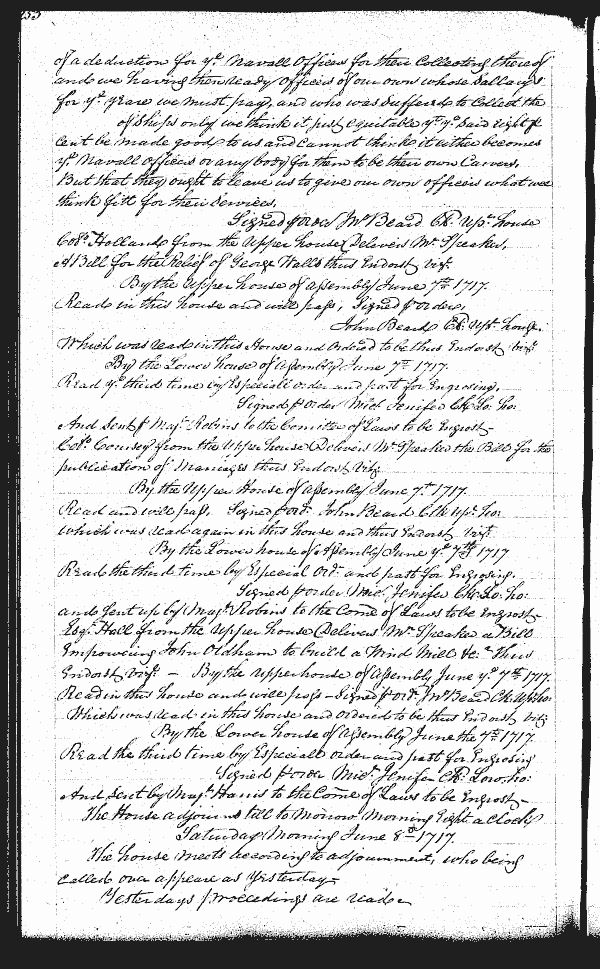 of a deduction for ye. Navall Officers for their Collecting thereof
and we having then ready officers of our own whose Sallarys
for ye. years we must pay, and who was Suffered to Collect the
of Ships only we think it just equitable yt. ye. Said eight p
Cent be made good to us and cannot think it wither becomes
ye. Navall officers or any body for them to be their own Carvers,
But that they ought to leave us to give our own officers what wee
think fitt for their Services,
Signed p order Jno. Beard Clk. Upr. house
Colo. Holland from the upper house Delivers Mr. Speaker,
A Bill for the Relief of George Walls thus Endorst vizt.
By the Upper house of assembly June 7th 1717.
Read in this house and will pass, Signed p Order,
John Beard Clk. Upr. house.
Which was read in this House and Ordred to be thus Endorst vizt.
By the Lower house of Assembly June 7th 1717.
Read ye. third time by Especiall order and past for Engrosing,
Signed p order Micl. Jenifer Clk. Lo. ho:
And Sent p Majr. Robins to the Comittee of Laws to be Engrost
Colo. Coursey from the Upper house Delivers Mr. Speaker the Bill for the
publication of Marriages thus Endorst vizt.
By the Upper House of assembly June 7th 1717.
Read and will pass, Signed p ordr. John Beard Clk Upr. ho:
which was read again in this house and thus Endorst vizt.
By the Lower house of Assembly June ye. 7th 1717
Read the third time by Especial Ordr. and past for Engrosing.
Signed p order Micl. Jenifer Clk. Lo. ho:
and Sent up by Majr. Robins to the Come. of Laws to be Engrost
Esqr. Hall from the Upper house Delivers Mr. Speaker a Bill
Empowering John Oldham to build a Wind Mill &c.a thus
Endorst vizt. - By the Upper house of Assembly June ye. 7th 1717.
Read in this house and will pass - Signed p ordr. Jno. Beard Clk Up. ho.
Which was read in this house and ordered to be thus Endorst vizt
By the Lower house of Assembly June the 7th 1717.
Read the third time by Especiall order and past for Engrosing
Signed p order Micl. Jenifer Clk. Low. ho:
And Sent by Majr. Harris to the Come of Laws to be Engrost -
The House adjourns till to Morrow Morning Eight a Clock
Saturday Morning June 8th 1717.
The house meets according to adjournment, who being
called over appeare as yesterday -
Yesterdays proceedings are read -